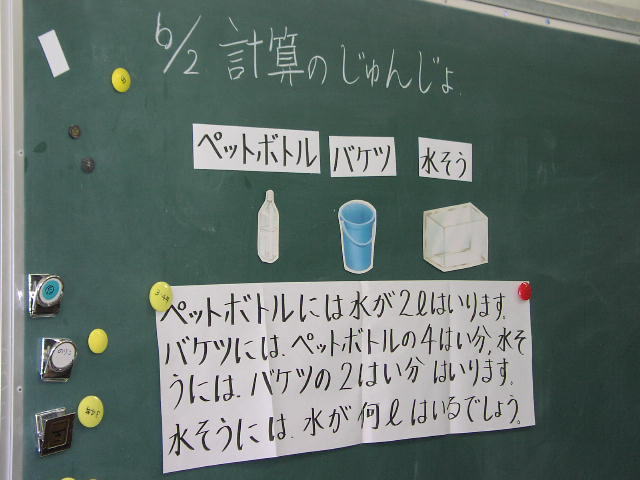 6/2 計算のじゅんじょ
ペットボトル バケツ 水そう
ペットボトルには水が2ℓはいります。
バケツには、ペットボトルの4はい分、水そ
うには、バケツの2はい分はいります。
水そうには、水が何ℓはいるでしょう。